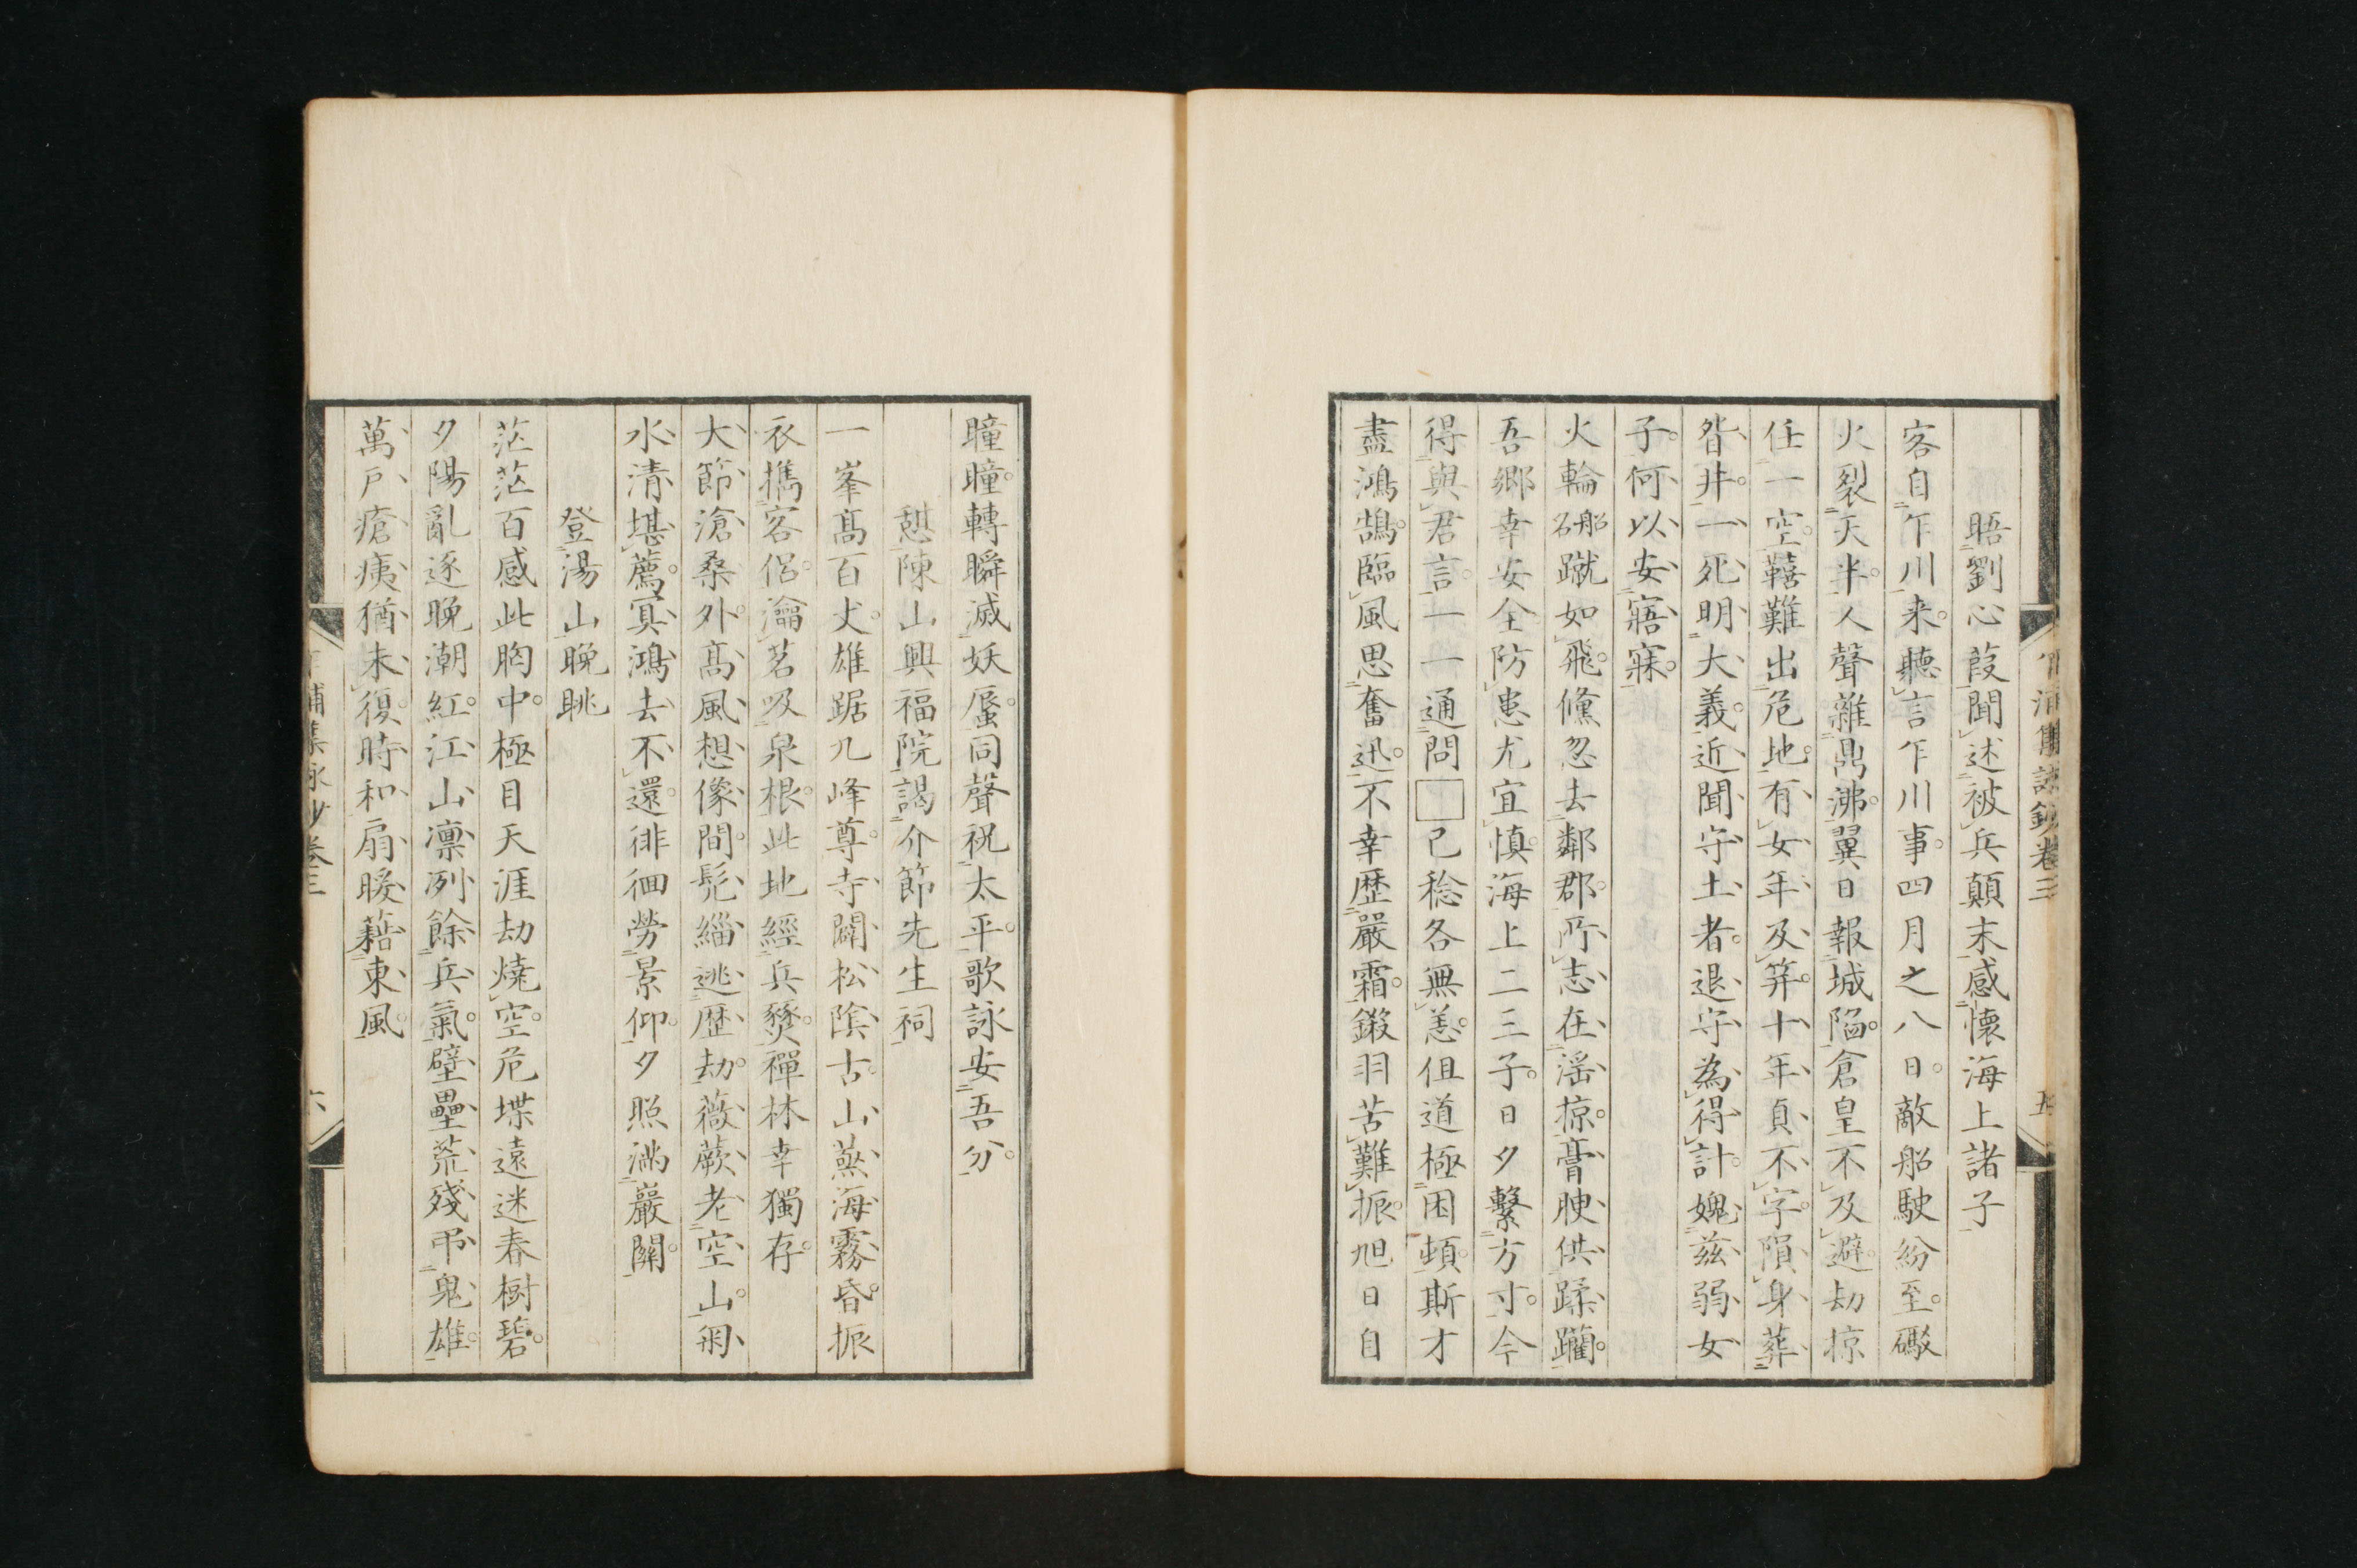 晤劉心葭聞述被兵顛末感懷海上諸子
客自乍川来聽言乍川事四月之八日敵船駛紛至礮
火裂天半人聲雜鼎沸翼日報城陥倉皇不及避劫掠
任一空韃難出危地有女年及笄十年貞不字隕身葬
眢井一死明大義近聞守土者退守為得計媿兹弱女
子何以安寤寐
火輪船蹴如飛儵忽去鄰郡所志在滛掠膏腴供蹂躪
吾郷幸安全防患尤宜慎海上二三子日夕繫方寸今
得與君言一一通問□已稔各無恙但道極困頓斯才
盡鴻鵠臨風思奮迅不幸歴嚴霜鍛羽苦難振旭日自
曈曈轉瞬滅妖蜃同聲祝太平歌詠安吾分
憩陳山興福院謁介節先生祠
一峯髙百丈雄踞九峰尊寺闢松隂古山蒸海霧昏振
衣擕客侶瀹茗汲泉根此地經兵燹禪林幸獨存
大節滄桑外髙風想像間髠緇逃歴劫薇蕨老空山菊
水清堪薦冥鴻去不還徘徊勞景仰夕照滿巖關
登湯山晚眺
茫茫百感此胸中極目天涯劫燒空危堞遠迷春樹碧
夕陽亂逐晚潮紅江山凛冽餘兵氣壁壘荒殘弔鬼雄
萬戸瘡痍猶未復時和扇暖藉東風
卷三
五
卷三
六